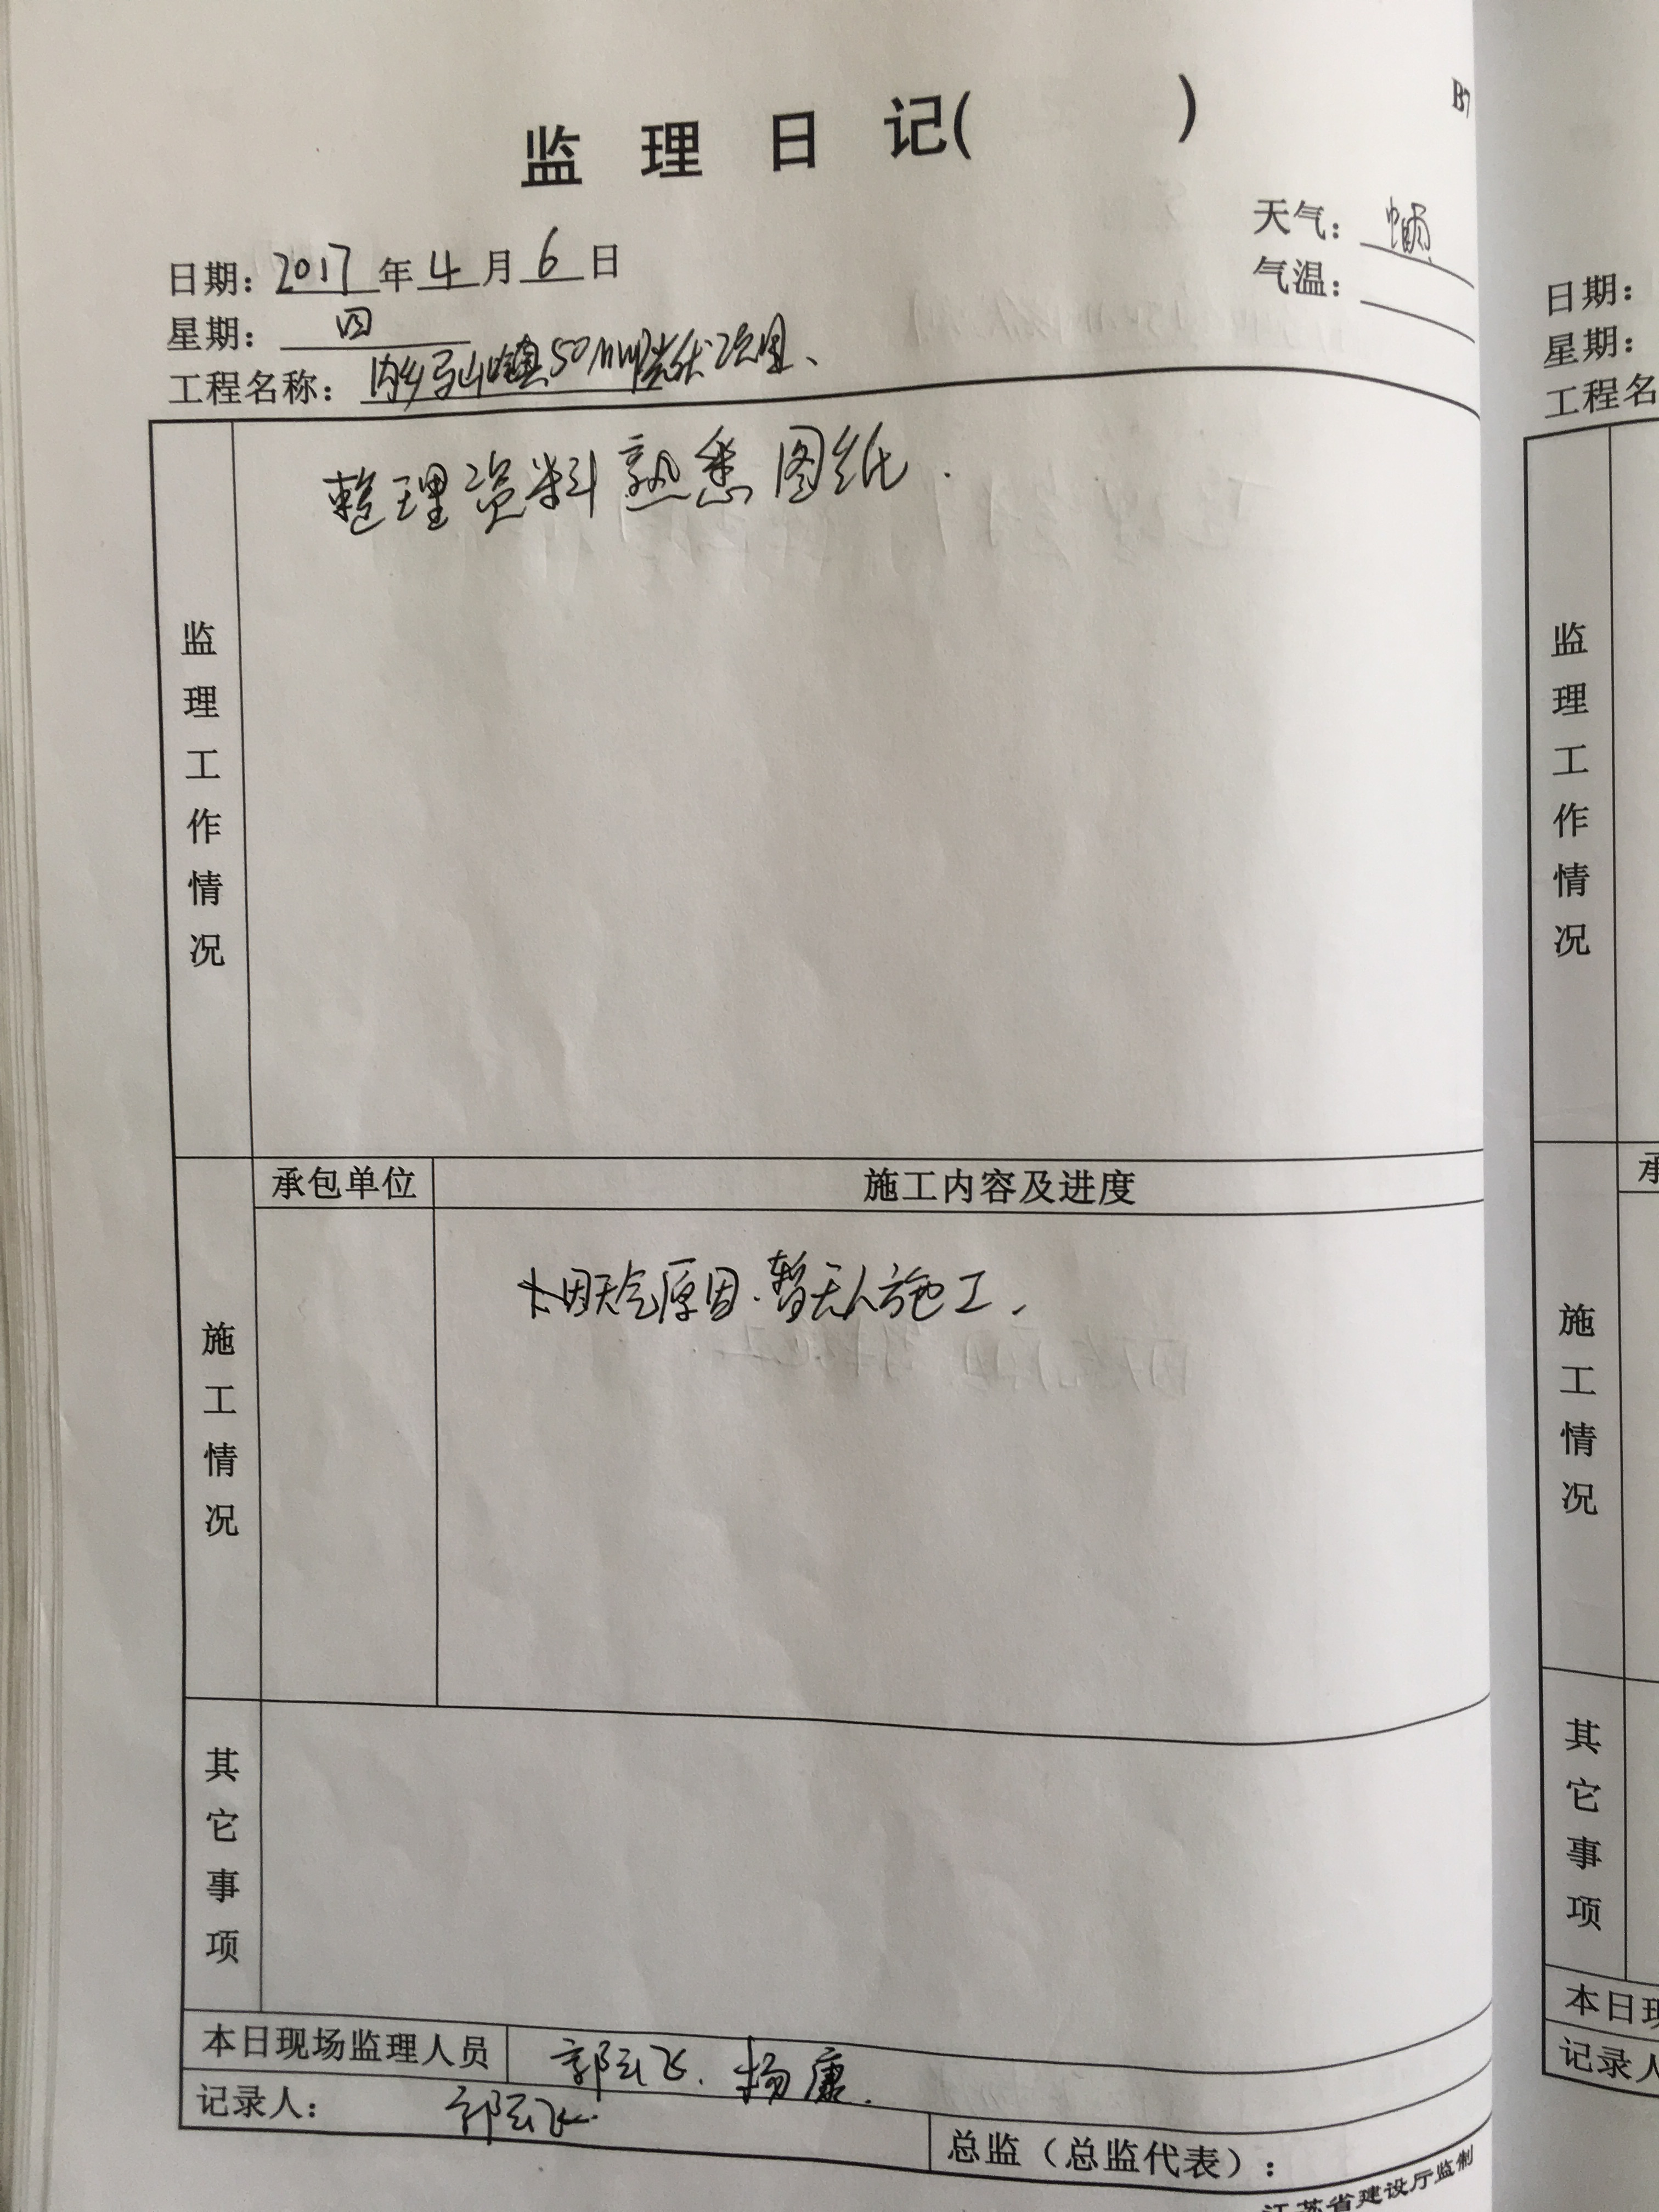 监理日记( )
B7
日期：2017年4月6日
天气：
星期：四
气温：
工程名称：内乡马山口镇50MWp光伏项目、
监理工作情况
整理资料熟悉图纸.
施工情况
承包单位
施工内容及进度
因天气原因.暂无人施工.
其它事项
本日现场监理人员
郭云飞.杨康.
记录人：郭云飞.
总监（总监代表）：
江苏省建设厅监制
日期：
星期：
工程名
监理工作情况
承
施工情况
其它事项
本日现
记录人